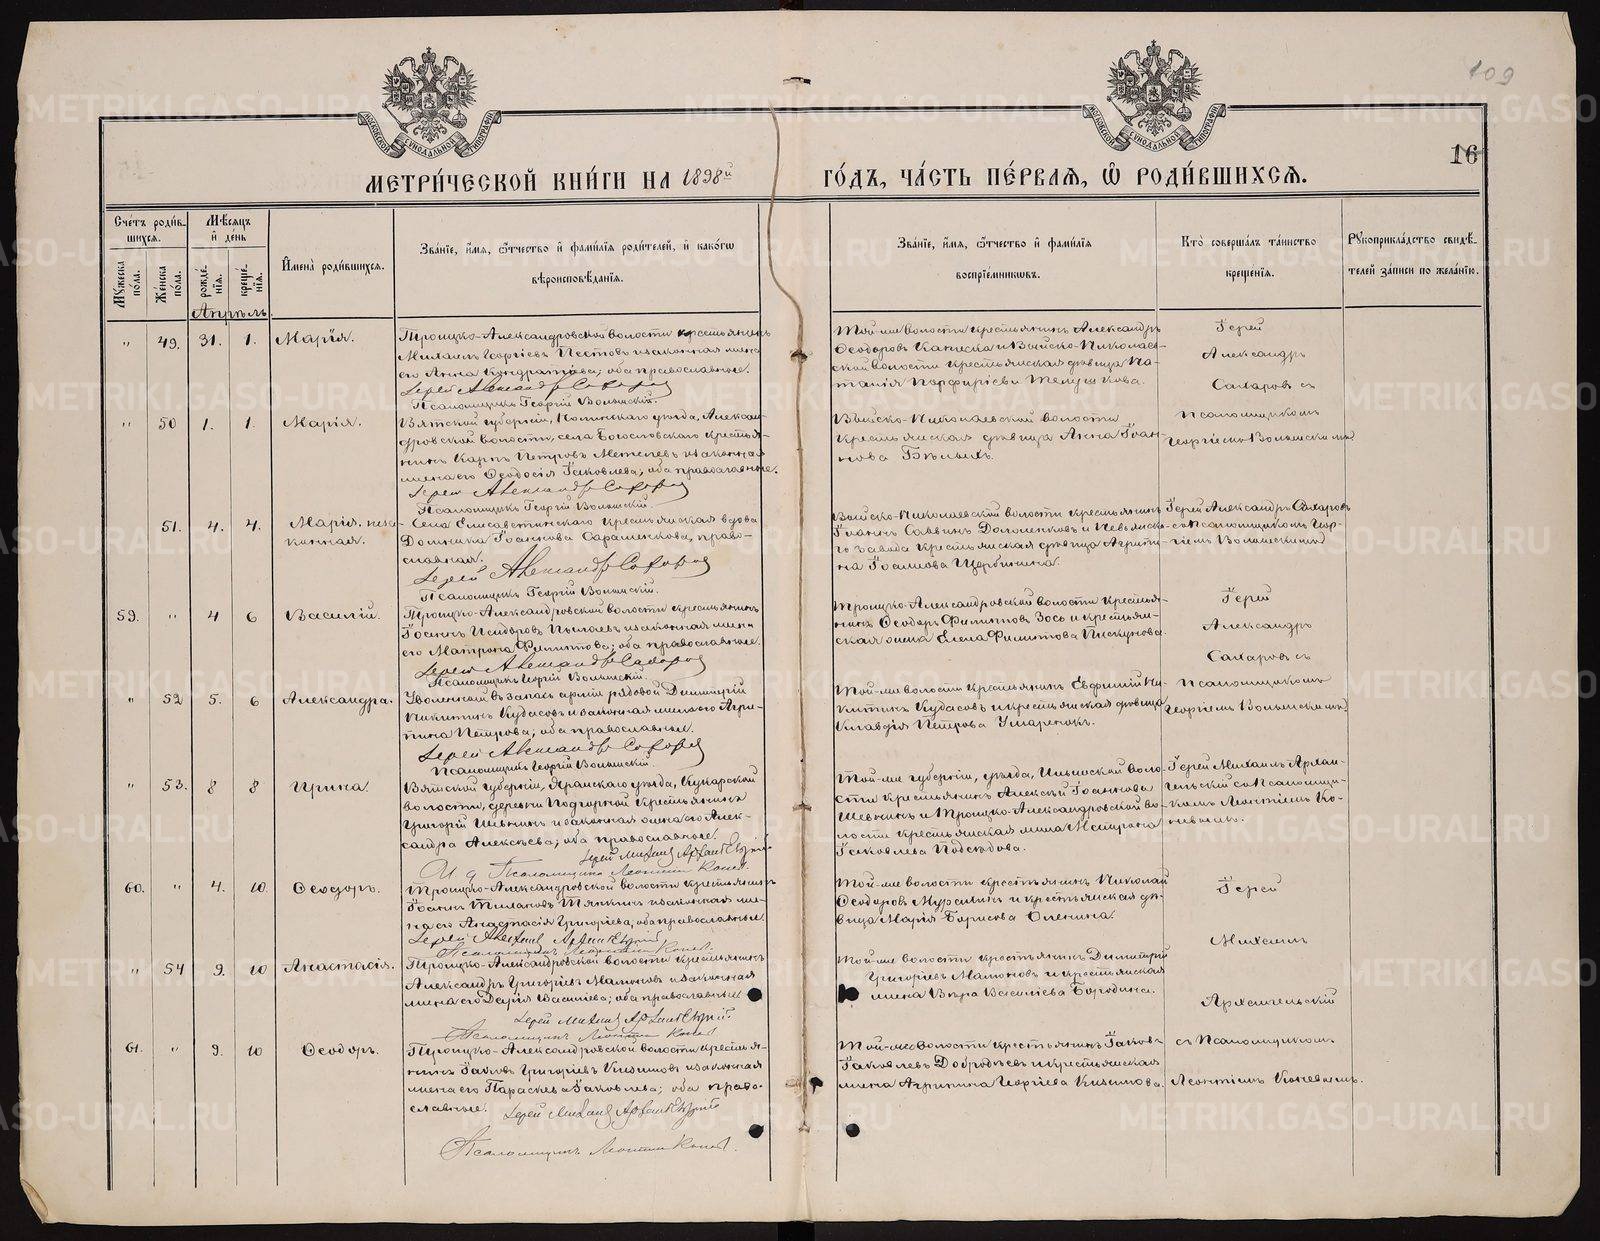 109
16
МЕТРИ́ЧЕСКОЙ КНИ́ГИ НА 1898й ГО́ДЪ, ЧА́СТЬ ПЕ́РВАЯ, Ѽ РОДИ́ВШИХСЯ.
Сче́тъ роди́в-
шихся.
Мѣ́сяцъ
и҆ де́нь
И҆мена̀ роди́вшихся.
Зва́нїе, и҆́мя, ѻ҆́тчество и҆ фами́лїя роди́телей, и҆ како́гѡ
вѣроисповѣ́данїя.
Зва́нїе, и҆́мя, ѻ҆́тчество и҆ фами́лїя
воспрїе́мникѡвъ.
Кто̀ соверша́лъ та́инство
креще́нїя.
Рꙋкоприкла́дство свидѣ́-
телей за́писи по жела́нїю.
Мꙋ́жеска по́ла.
Же́нска по́ла.
рожде́нїя.
креще́нїя.
Апрѣль
" 49. 31. 1. Марія.
Троицко-Александровской волости крестьянинъ
Михаилъ Георгіевъ Пестовъ и законная жена
его Анна Кундратьева; оба православные.
Іерей Александръ Сахаровъ
Псаломщикъ Георгій Волынскій.
Той-же волости крестьянинъ Александръ
Ѳеодоровъ и Выйско-Николаев-
ской волости крестьянская дѣвица На-
талія Порфиріева
Іерей
Александръ
Сахаровъ съ
псаломщикомъ
Георгіемъ Волынскимъ
" 50 1. 1. Марія.
Вятской губерніи, уѣзда, Алексан-
дровской волости, села Богословскаго крестья-
нинъ Карпъ Петровъ и законная
жена его Ѳеодосія Іаковлева; оба православные.
Іерей Александръ Сахаровъ
Псаломщикъ Георгій Волынскій.
Выйско-Николаевской волости
крестьянская дѣвица Анна Іоан-
нова Бѣлыхъ.
51. 4. 4. Марія. неза-
конная.
Села Елисаветинскаго крестьянская вдова
Домника Іоаннова православная.
Іерей Александръ Сахаровъ
Псаломщикъ Георгій Волынскій.
Выйско-Николаевской волости крестьянинъ
Іоаннъ Саввинъ и Невьянска-
го завода крестьянская дѣвица Агрипи-
на Іоаннова Щербинина.
Іерей Александръ Сахаровъ
съ псаломщикомъ Геор-
гіемъ Волынскимъ
59. " 4 6 Василій.
Троицко-Александровской волости крестьянинъ
Іоаннъ Исидоровъ и законная жена
его Матрона Филиппова; оба православные.
Іерей Александръ Сахаровъ
Псаломщикъ Георгій Волынскій.
Троицко-Александровской волости крестья-
нинъ Ѳеодоръ Филипповъ Зосъ и крестьян-
ская жена Елена Филиппова Пискунова.
Іерей
Александръ
Сахаровъ съ
псаломщикомъ
Георгіемъ Волынскимъ
" 52 5. 6 Александра.
Уволенный въ запасъ арміи рядовой Димитрій
Никитинъ Кудасовъ и законная жена его Агри-
пина Петрова; оба православные.
Іерей Александръ Сахаровъ
Псаломщикъ Георгій Волынскій.
Той-же волости крестьянинъ Евфимій Ни-
китинъ Кудасовъ и крестьянская дѣвица
Клавдія Петрова
" 53. 8 8 Ирина.
Вятской губерніи, Яранскаго уѣзда, Кукарской
волости, деревни Подгорной крестьянинъ
Григорій Шевнинъ и законная жена его Алек-
сандра Алексѣева; оба православные.
Іерей Михаилъ Архангельскій
И. д. Псаломщика Леонтій Коневъ.
Той-же губерніи, уѣзда, воло-
сти крестьянинъ Алексѣй Іоанновъ
Шевнинъ и Троицко-Александровской во-
лости крестьянская жена Матрона
Іаковлева Подсѣдова.
Іерей Михаилъ Архан-
гельскій съ псаломщи-
комъ Леонтіемъ Ко-
невымъ.
60. " 4. 10. Ѳеодоръ.
Троицко-Александровской волости крестьянинъ
Іоаннъ Тяпкинъ и законная же-
на его Анастасія Григорьева, оба православные.
Іерей Михаилъ Архангельскій
Псаломщикъ Леонтій Коневъ.
Той-же волости крестьянинъ Николай
Ѳеодоровъ Мурсалинъ и крестьянская дѣ-
вица Марія Борисова Оленина.
Іерей
Михаилъ
Архангельскій
съ псаломщикомъ
Леонтіемъ Коневымъ.
" 54 9. 10 Анастасія.
Троицко-Александровской волости крестьянинъ
Александръ Григорьевъ Мамоновъ и законная
жена его Дарія Васильева; оба православные
Іерей Михаилъ Архангельскій.
Псаломщикъ Леонтій Коневъ
Той-же волости крестьянинъ Димитрій
Григорьевъ Мамоновъ и крестьянская
жена Вѣра Васильева Бородина.
61. " 9. 10 Ѳеодоръ.
Троицко-Александровской волости крестья-
нинъ Іаковъ Григорьевъ Кизимовъ и законная
жена его Параскева Іаковлева; оба право-
славные.
Іерей Михаилъ Архангельскій
Псаломщикъ Леонтій Коневъ.
Той-же волости крестьянинъ Іаковъ
Іаковлевъ Добродѣевъ и крестьянская
жена Агрипина Георгіева Кизимова.
METRIKI.GASO-URAL.RU